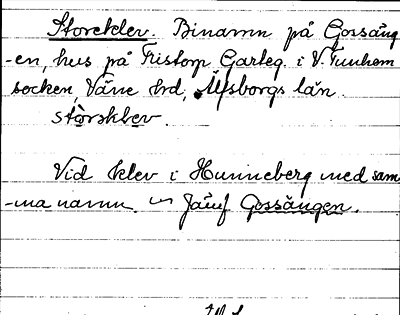 Storeklev. Binamn på Gossäng
-en, hus på Fristorp Garleg. i V. Tunhem
socken, Väne hd, Älvsborgs län.
stòrsklev.
Vid klev i Hunneberg med sam
-ma namn. Jämf Gossängen.